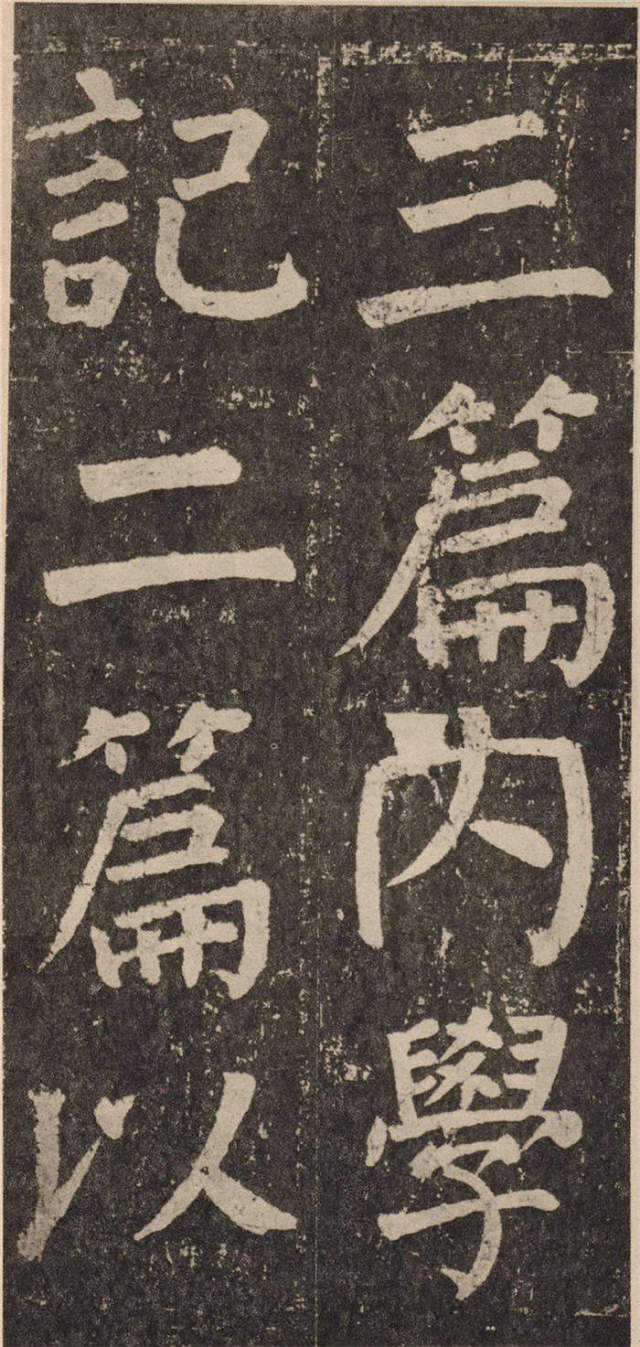 三篇内學
記二篇以